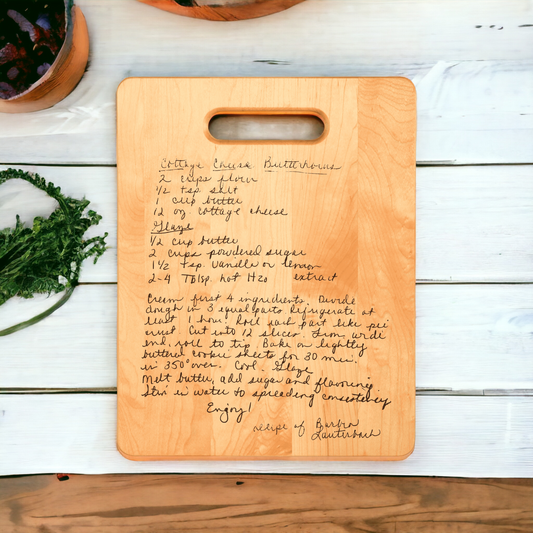 Cottage Cheese Butterhorns
2 cups flour
1/2 tsp. salt
1 cup butter
12 oz cottage cheese
Glaze
1/2 cup butter
2 cups powdered sugar
1 1/2 tsp. vanilla or lemon
2-4 Tblsp. hot H2O extract
Cream first 4 ingredients. Divide
dough in 3 equal parts Refrigerate at
least 1 hour. Roll each part like pie
crust Cut into 12 slices. From wide
end, roll to tip. Bake on lightly
buttered cookie sheets for 30 min.
in 350° oven. Cool. Glaze
Melt butter, add sugar and flavoring.
Stir in water to spreading consistency
Enjoy!
recipe of Barbra
Lauterbach